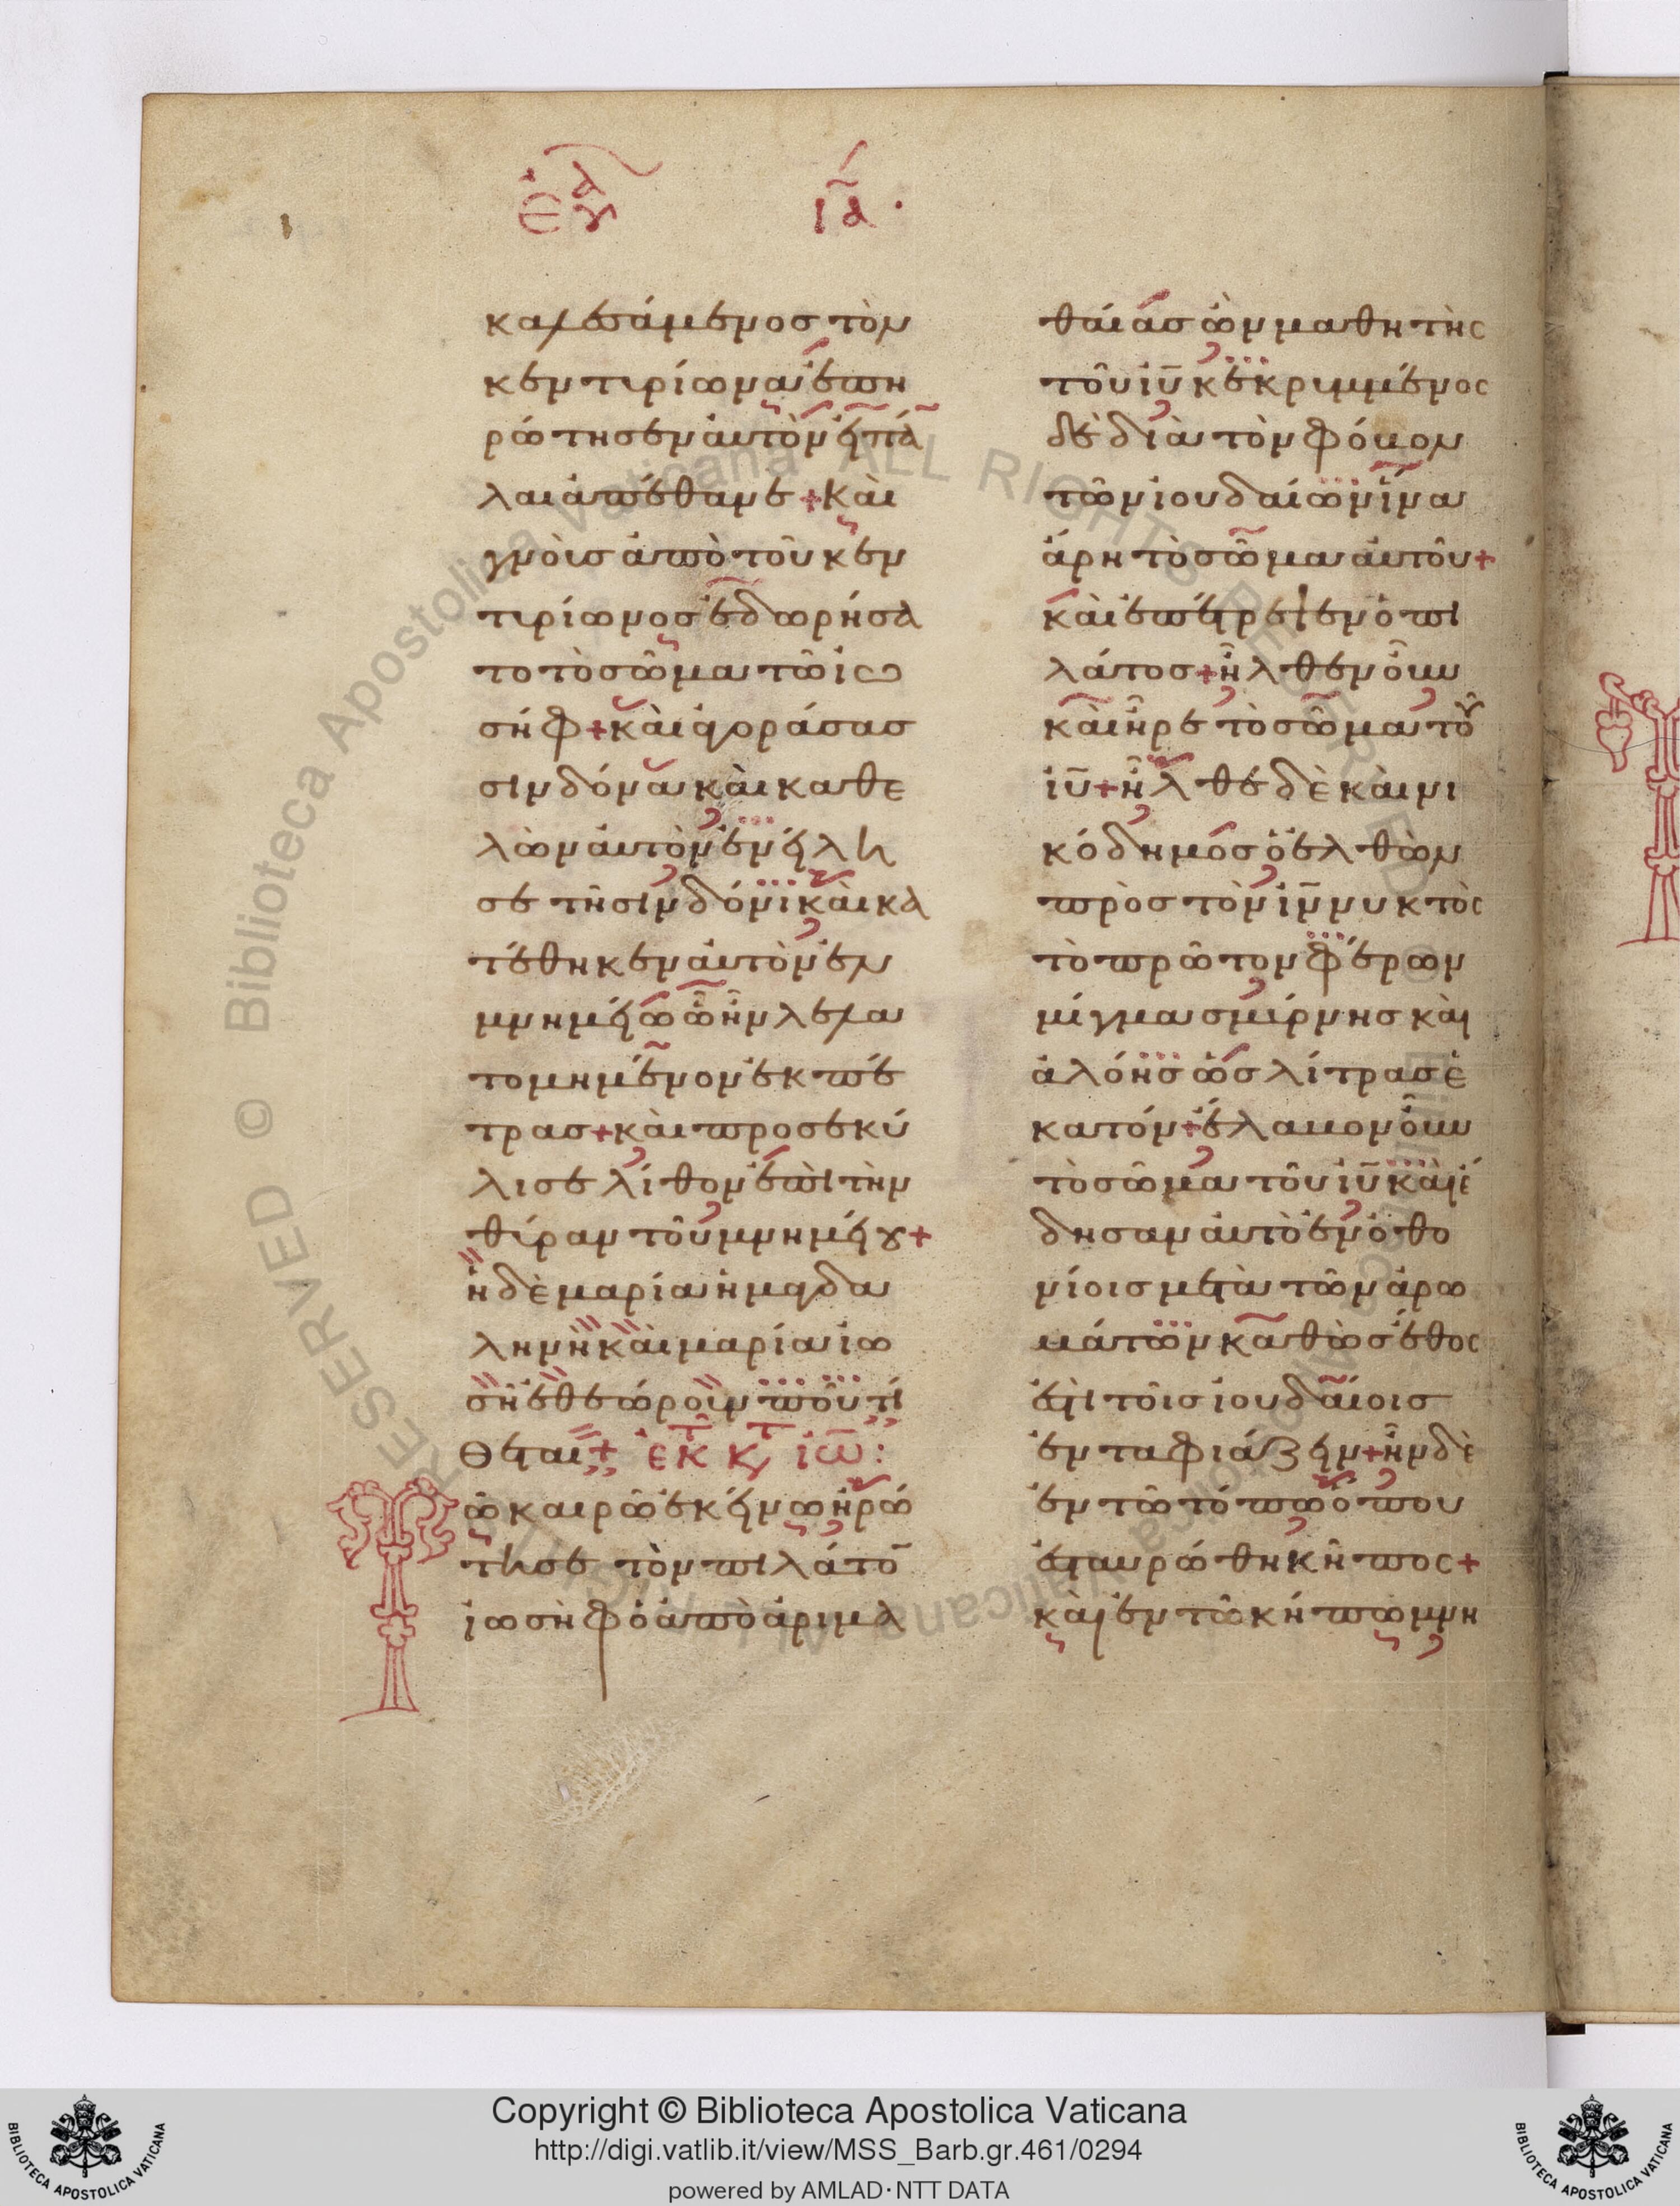 ἐυα ια ·
καλεσάμενος τὸν
κεντιρίωνα ἐπη
ρώτησεν ἀυτὸν εἰ πά
λαι ἀπέθανε + Κὰι
γνοὺσ ἀπὸ τοῦ κεν
τιρίωνοσ ἐδωρήσα
το τὸ σῶμα τῶ ἰω
σήφ + κὰι ἀγοράσασ
σινδόνα κὰι καθε
λὼν ἀυτὸν ἐνείλη
σε τῆ σινδόνι κὰι κα
τέθηκεν ἀυτὸν ἐν
μνημείω ὧ ἦν λελα
τομημένον ἐκ πέ
τρασ + κὰι προσεκύ
λισε λίθον ἐπὶ τὴν
θύραν τοῦ μνημείου +
ἡ δὲ μαρία ἡ μαγδα
ληνὴ κὰι μαρία ἰω
σῆ ἐθεώρουν ποῦ τί
θεται + ἐκ τ κτ ἰω :
Τῶ καιρῶ ἐκείνω ἠρώ
τησε τὸν πιλάτο̄
ἰωσὴφ ὁ ἀπὸ ἀριμα
θαίασ ὢν μαθητὴς
τοῦ ἰῡ κεκριμμένος
δὲ διὰ τὸν φόβον
τῶν ἰουδαίων ἵνα
ἄρη τὸ σῶμα ἀυτοῦ +
κὰι ἐπέτρεψεν ὁ πι
λάτοσ + ἦλθεν ὂυν
κὰι ἦρε τὸ σῶμα τοῦ
ἰῡ + ἦλθε δὲ κὰι νι
κόδημοσ ὁ ἐλθὼν
πρὸσ τὸν ἰν̄ νυκτὸς
τὸ πρῶτον φέρων
μίγμα σμίρνησ κὰι
ἀλόησ ὡσ λίτρασ ἑ
κατόν + ἔλαβον ὂυν
τὸ σῶμα τοῦ ἰῡ κὰι ἔ
δησαν ἀυτὸ ἐν ὀθο
νίοισ μετὰ τῶν ἀρω
μάτων καθὼσ ἔθος
ἐστὶ τοῖσ ἰουδαίοισ
ἐνταφιάζειν + ἦν δὲ
ἐν τῶ τόπω ὅπου
ἐσταυρώθη κῆπος +
κὰι ἐν τῶ κήπω μνη
Copyright © Biblioteca Apostolica Vaticana
http://digi.vatlib.it/view/MSS_Barb.gr.461/0294
powered by AMLAD·NTT DATA